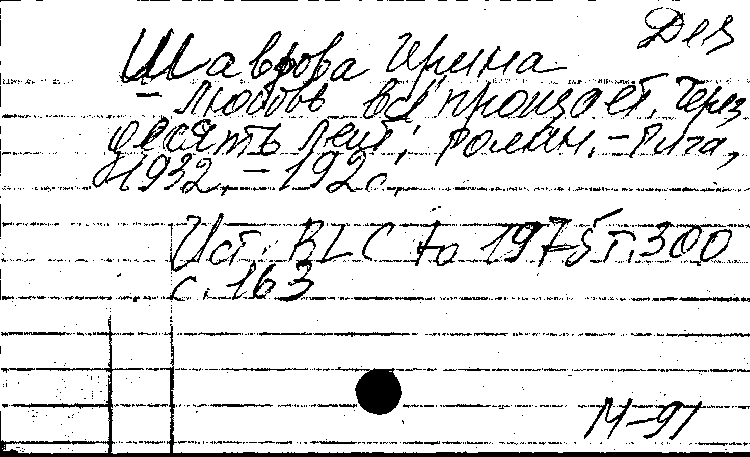 Дез
Шаврова Ирина
- Любовь всё прощает. Через
десять лет; роман. - Рига,
1932. - 192 с.
Ист. BLC to 1975 т. 300
с. 163
М-91